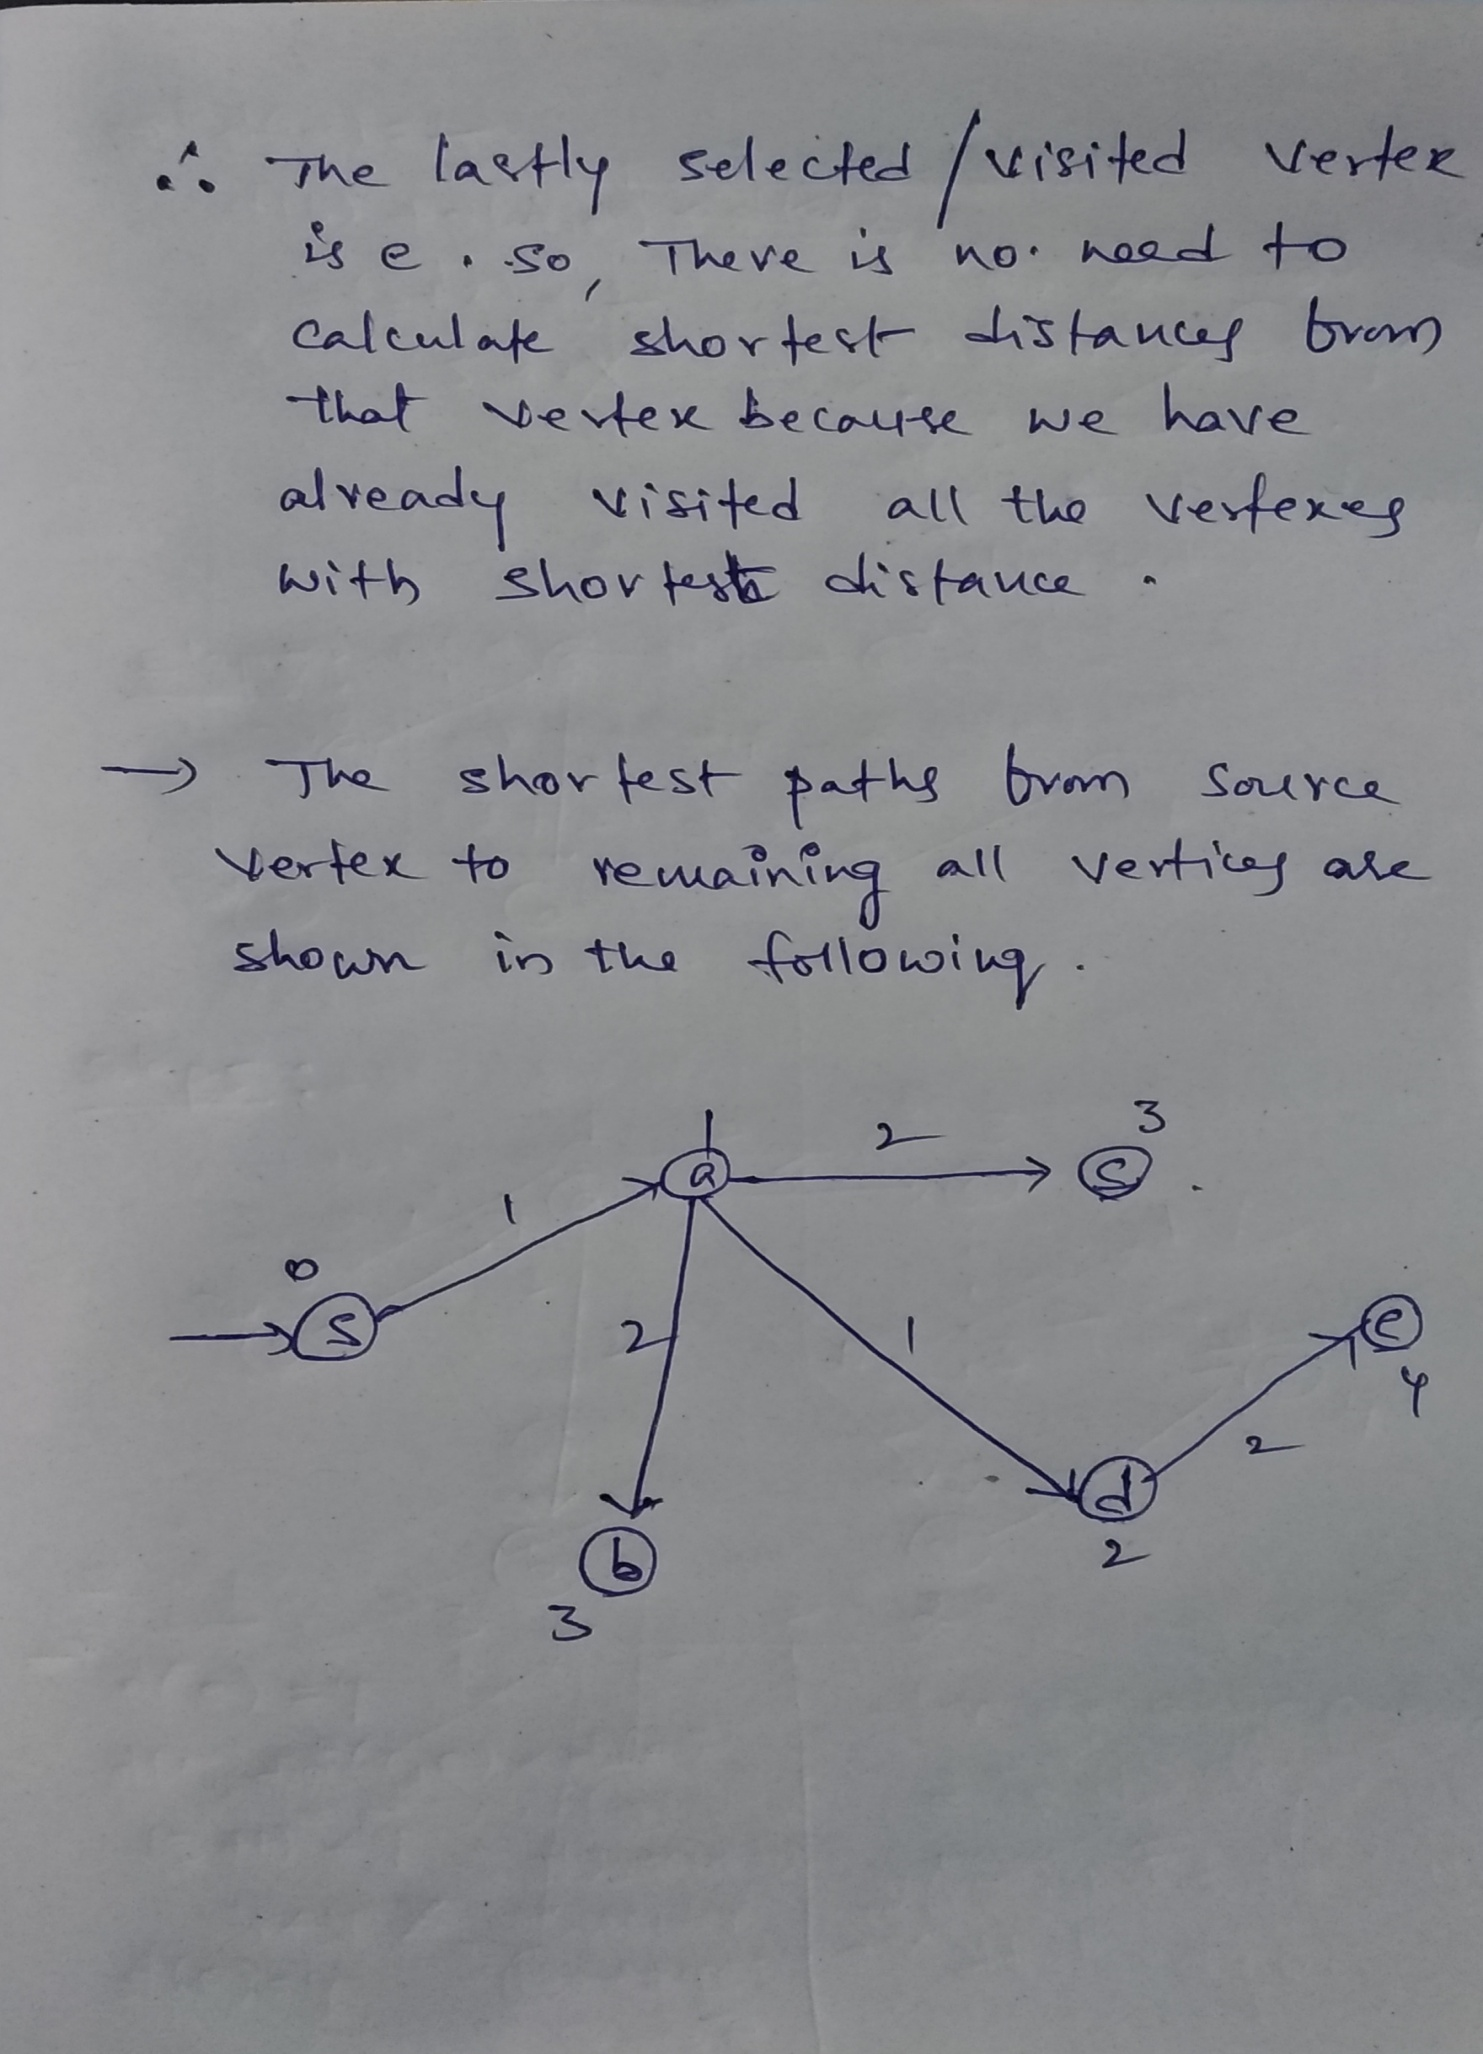 ∴ The lastly selected / visited vertex
is e . so, There is no. need to
calculate shortest distances from
that vertex because we have
already visited all the vertexes
with shortest distance .
→ The shortest paths from source
vertex to remaining all vertices are
shown in the following .
3
1 2
a c .
1
0
S 2 1 e
4
2
d
b 2
3